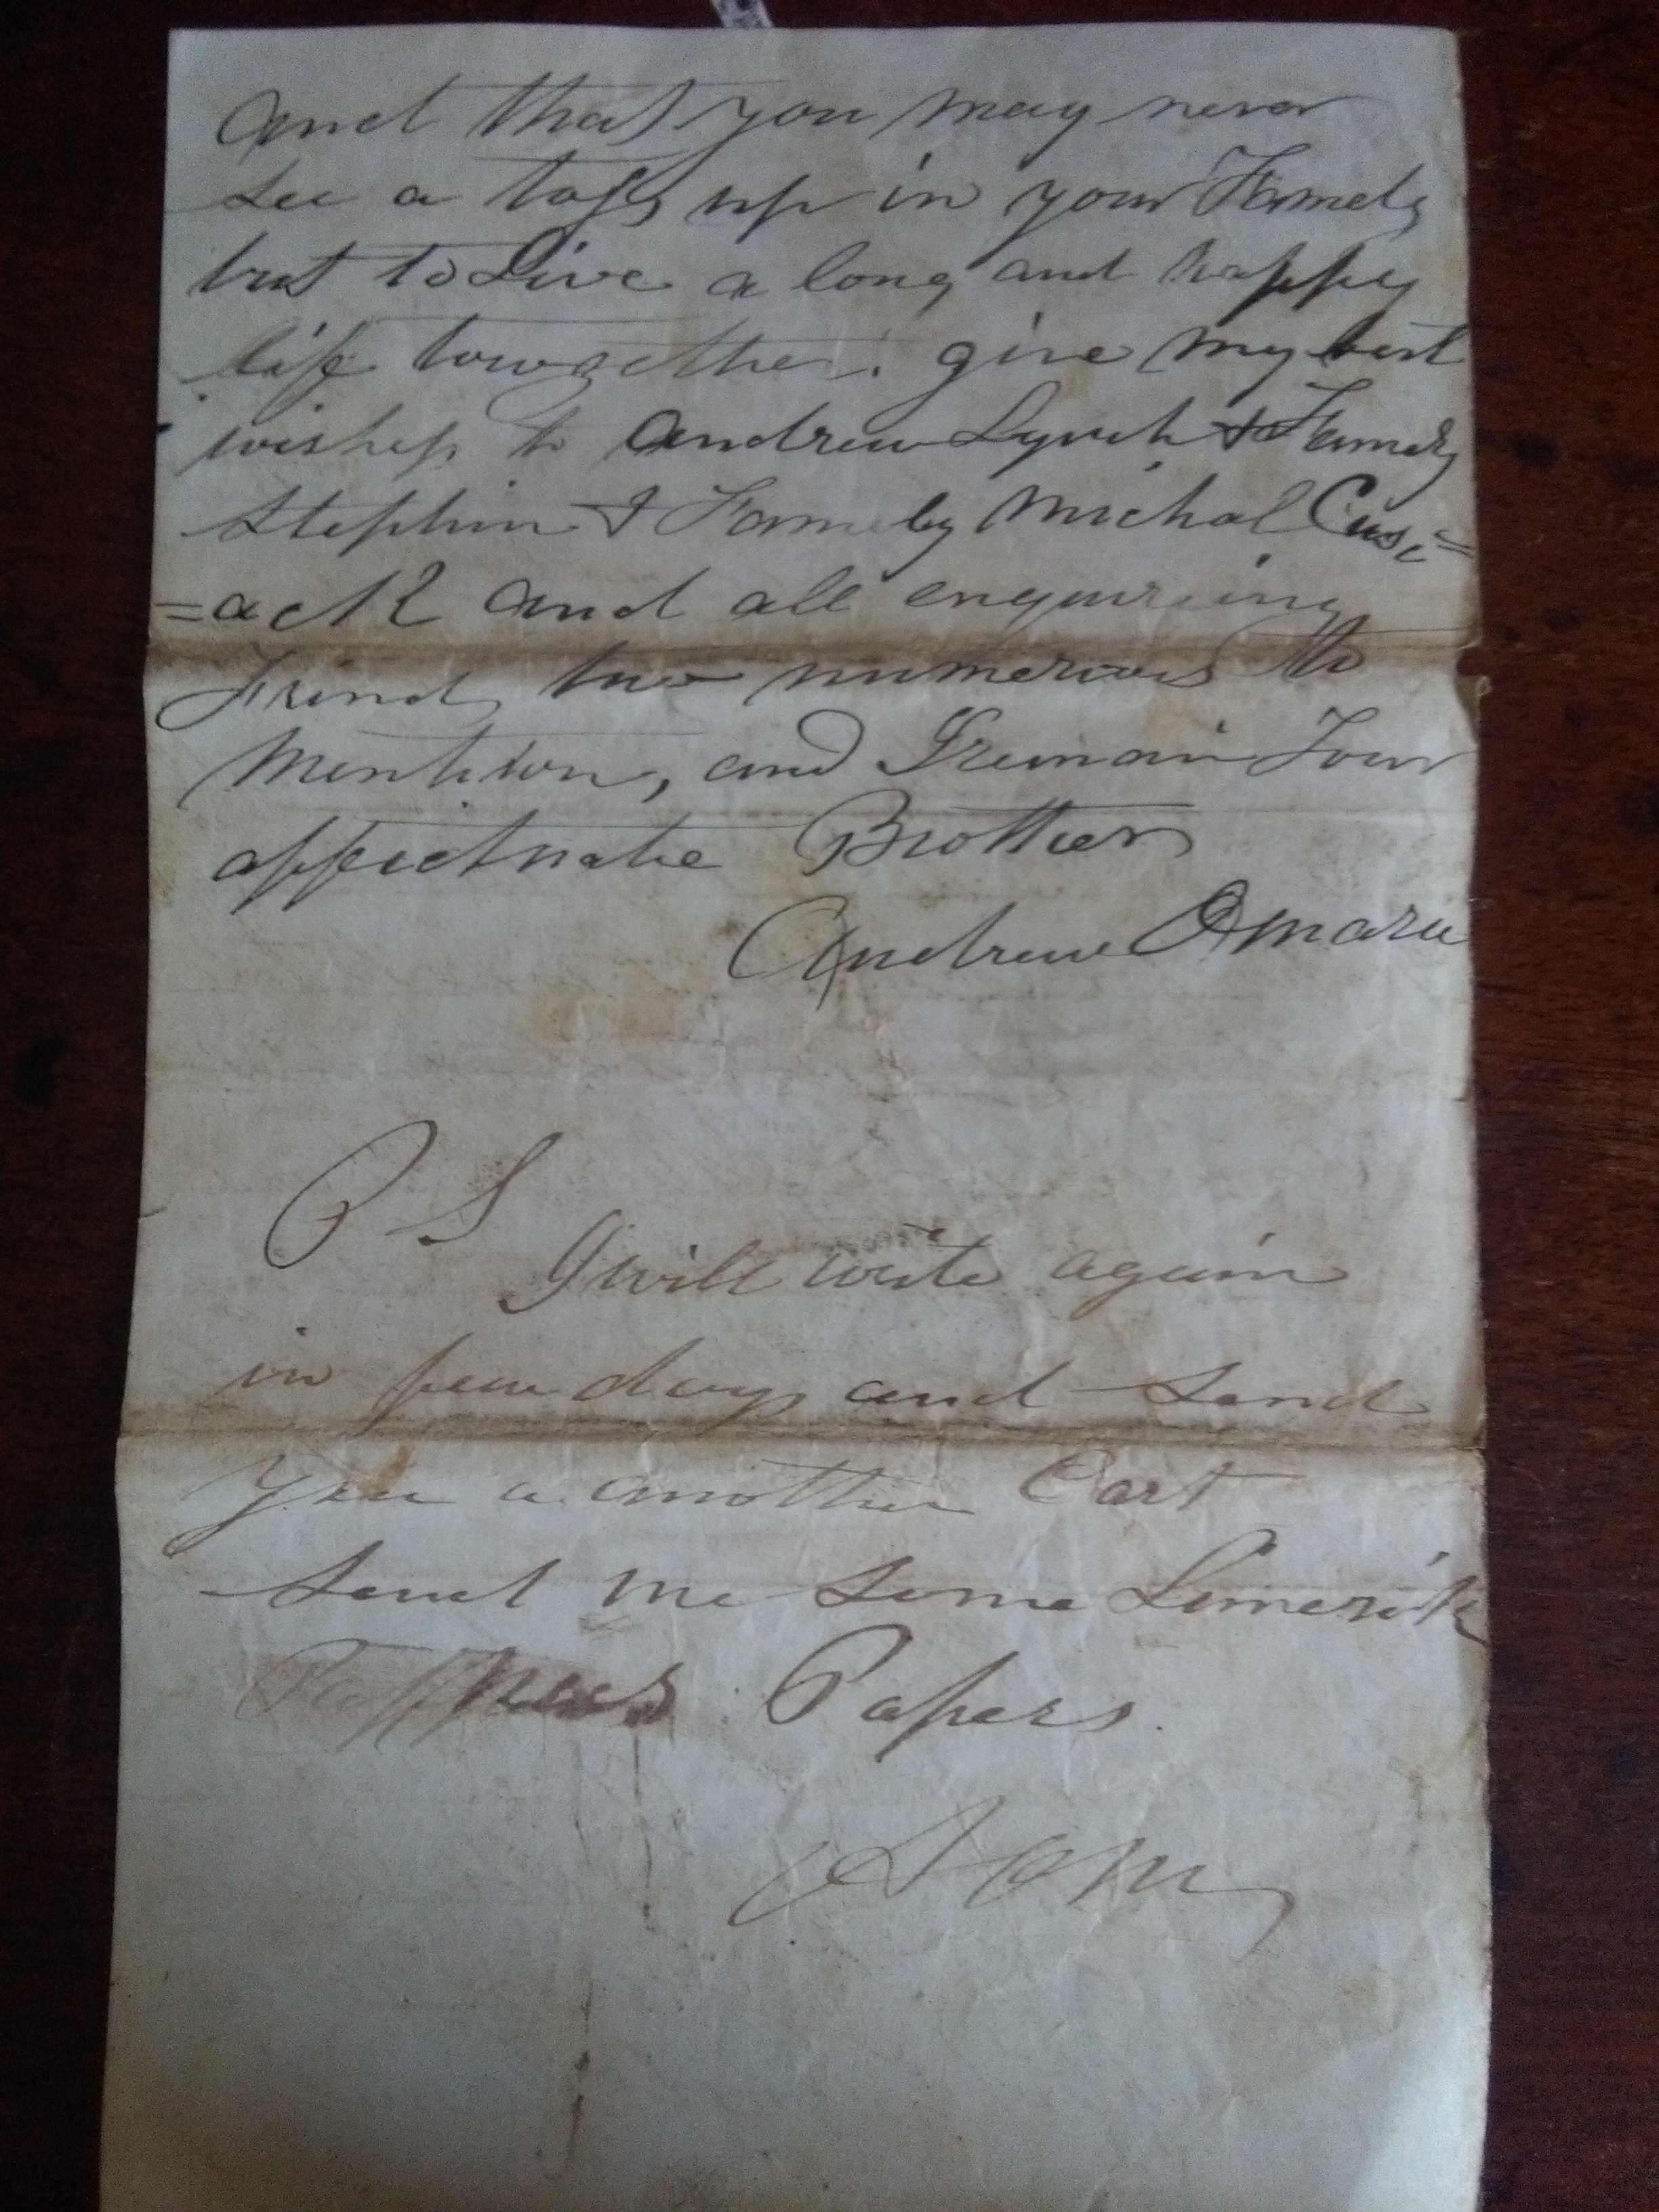 and that you may never
see a toss up in your Famely
but to Live a long and happy
life towogether. give my best
wishes to Andrew Lynch & Famely
Stephen & Famely Michal Cusc=
=ack and all enquireing
Friends two numerous to
Mention, and I remain Your
affectnate Brother
Andrew OMara
P S
I will write again
in few days and send
you a another Cart
Send me some Limerick
News Papers.
A O M